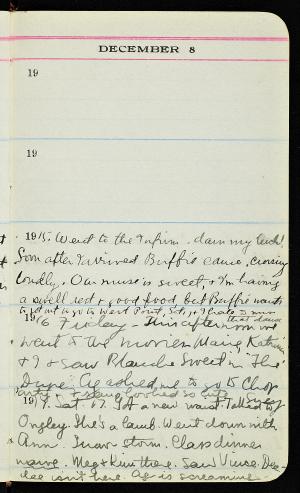 DECEMBER 8
19
19
1915. Went to the Infirm. darn my luck!
Soon after I arrived Buffie came, crossing
loudly. Our nurse is sweet, & I'm having
a swell rest & good food, but Buffie wants
to get out & go to West Point, Sat, & I hate to miss
that dance
1916 Friday - This afternoon we
went to the movies Marie, Katrin
& I & saw Blanche Sweet in "The
Dupe". Ag asked me to go to Chop
1917. Sat. 17. Got a new waist. Talked to
Ongley. She's a lamb. Went down with
Ann. Snow-storm. Class dinner
Meg & Kim there. Saw Vince.
isn't here. Ag is screaming